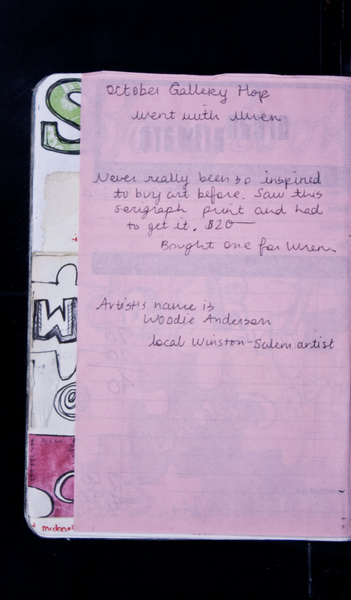 October Gallery Hop
went with Wren
Never really been so inspired
to buy art before. Saw this
serigraph print and had
to get it. $20
Bought one for Wren
Artist's name is
Woodie Anderson
local Winston-Salem artist